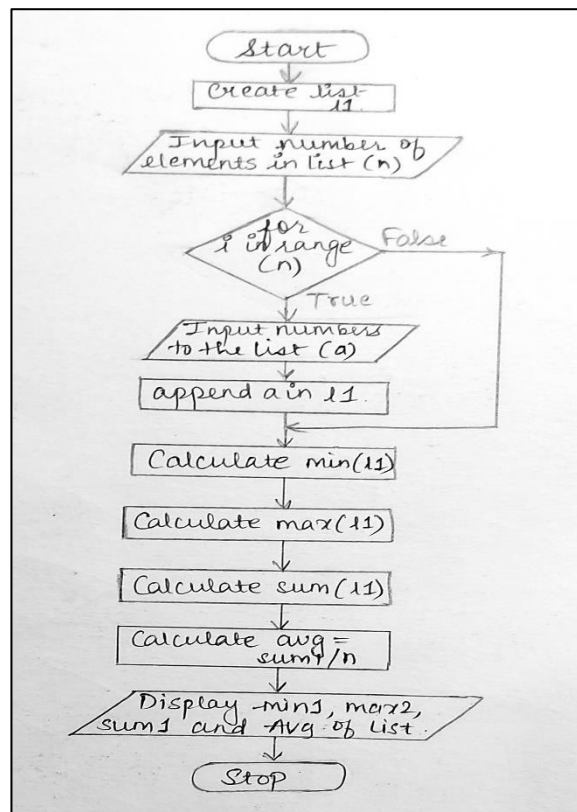 Start
Create list
l1
Input number of
elements in list (n)
for
i in range
(n)
False
True
Input numbers
to the list (a)
append a in l1.
Calculate min(l1)
Calculate max(l1)
Calculate sum(l1)
Calculate avg =
sum1/n
Display min1, max2,
sum1 and Avg of List.
Stop